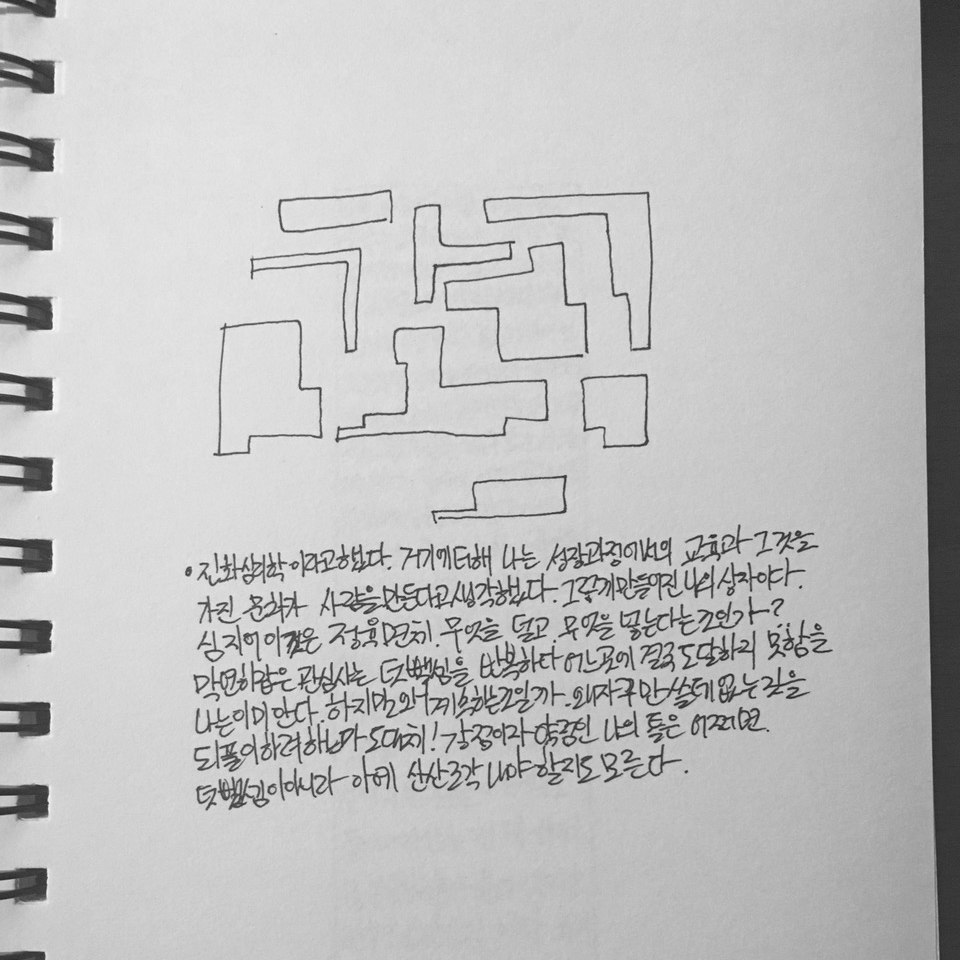 진화심리학이라고 했다. 거기에 더해 나는 성장과정에서의 교육과 그것을
가진 문화가 사람을 만든다고 생각했다. 그렇게 만들어진 나의 상자이다.
심지어 이것은 정육면체! 무엇을 덜고 무엇을 넣는다는 것인가?
막연하 관심사는 덧뺄셈을 반복하다 어느 곳에 결국 도달하지 못함을
나는 이미 안다. 하지만 왜 계속하는 것일까. 왜 자꾸만 쓸데없는 짓을
되풀이하려 하는가 도대체! 강점이자 약점인 나의 틀은 어쩌면
덧뺄셈이 아니라 아예 산산조각 내야할지도 모른다.